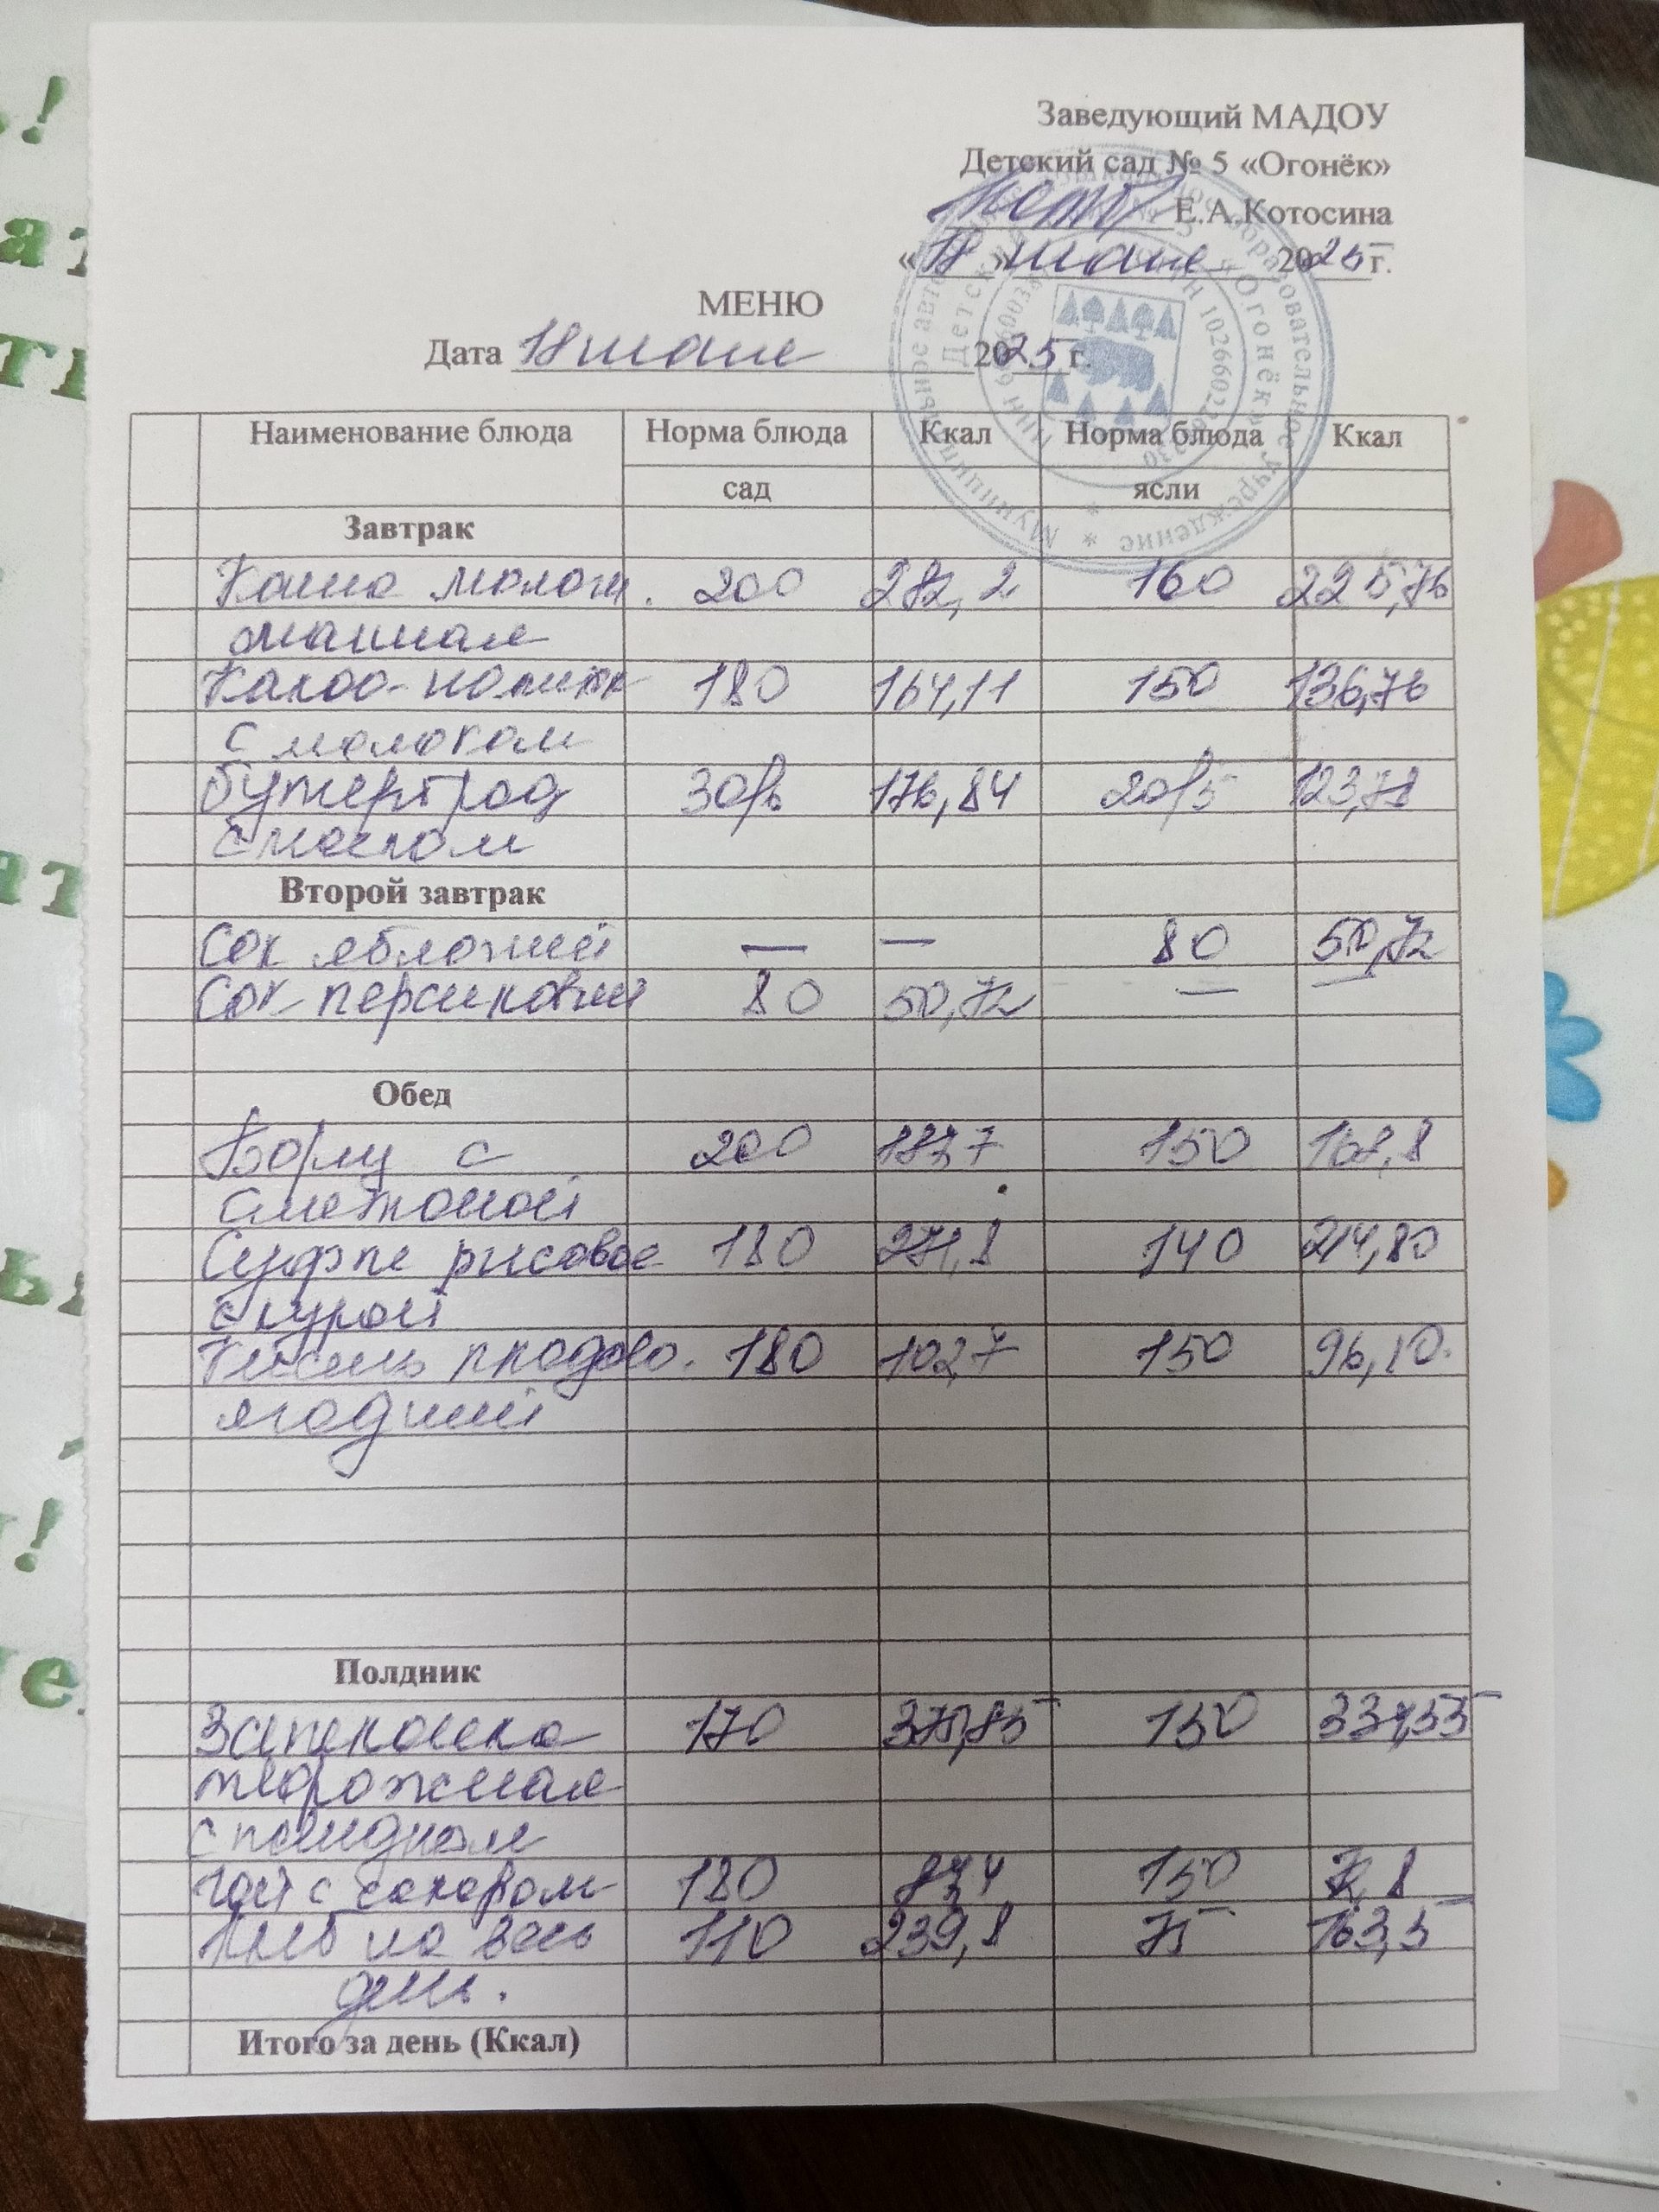 Заведующий МАДОУ
Детский сад № 5 «Огонёк»
Е.А.Котосина
«18» июля 2025 г.
МЕНЮ
Дата 18 июля 2025 г.
Наименование блюда Норма блюда Ккал Норма блюда Ккал
сад ясли
Завтрак
Каша молочн. 200 282,2 160 225,76
манная
Какао-напиток 180 164,11 150 136,76
с молоком
Бутерброд 30/6 176,84 20/5 123,78
с маслом
Второй завтрак
Сок яблочный — — 80 50,72
Сок персиковый 80 50,72 — —
Обед
Борщ с 200 150
сметаной
Суфле рисовое 180 271,8 140 214,80
с курой
Кисель плодово- 180 102,7 150 96,10
ягодный
Полдник
Запеканка 170 150
творожная
с повидлом
Чай с сахаром 180 150
Хлеб на весь 110 239,8 75 163,5
день.
Итого за день (Ккал)
Муниципальное автономное дошкольное образовательное учреждение
Детский сад № 5 «Огонёк»